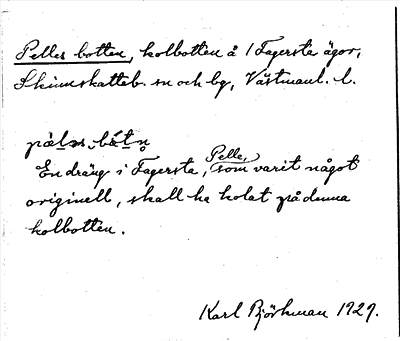 Pelles botten, kolbotten å 1 Fagersta ägor,
Skinnskatteb. sn och bg, Västmanl. l.
päl̲ǝs båt̲n̥
En dräng i Fagersta, Pelle, som varit något
originell, skall ha kolat på denna
kolbotten.
Karl Björkman 1929.